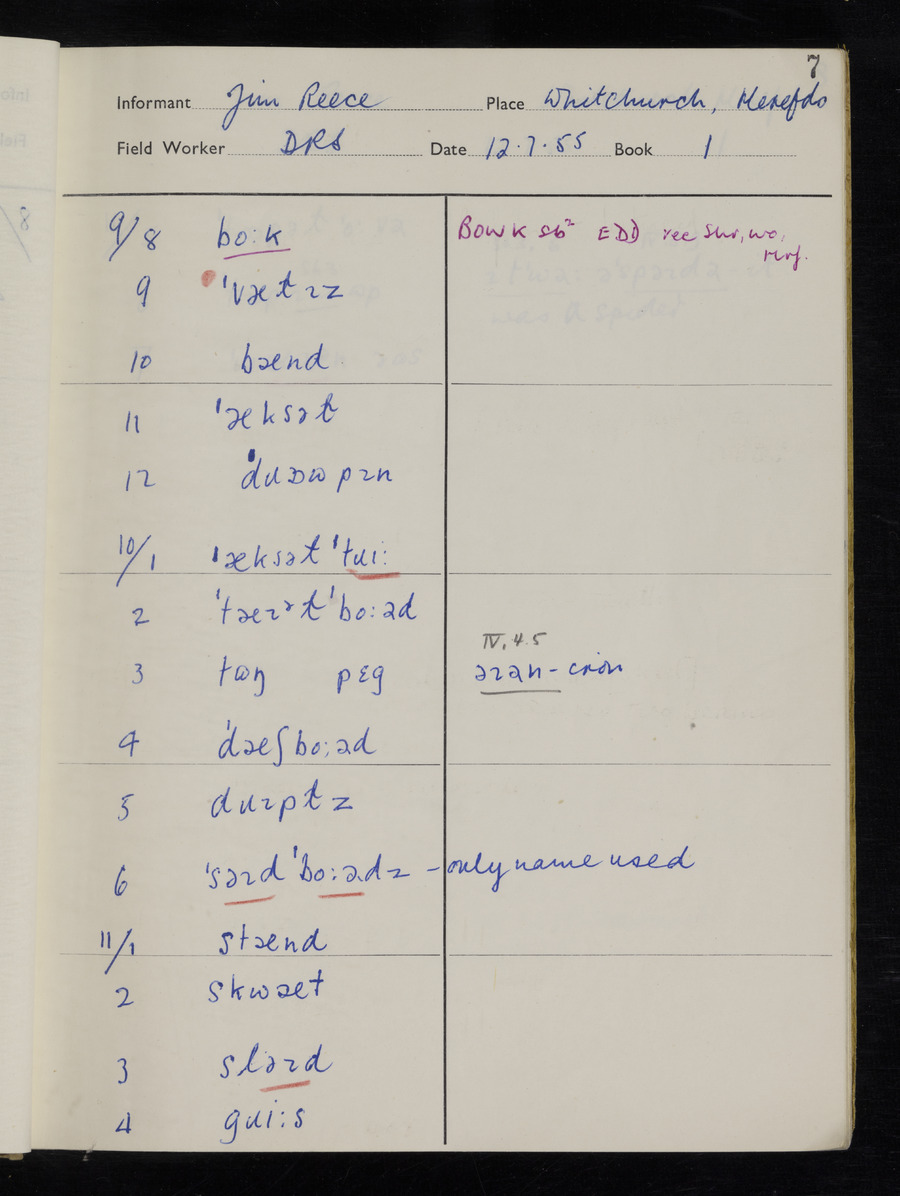 7
Informant Jim Reece Place Whitchurch, Herefds
Field Worker DRS Date 12.7.55 Book 1
9/8 bo:k BOWK sb² EDD rec Shr, Wo,
Hrf.
9 ˈvætɪz
10 bænd
11 ˈæksət
12
10/1 ˈæksət ˈtui:
2 bo:əd
3 tɒŋ pɛg
IV. 4. 5
əɪən - iron
4 ˈdæʃbo:əd
5
6 ˈsəɪd ˈbo:ədz - only name used
11/1 stænd
2 skwæt
3 sləɪd
4 gui:s